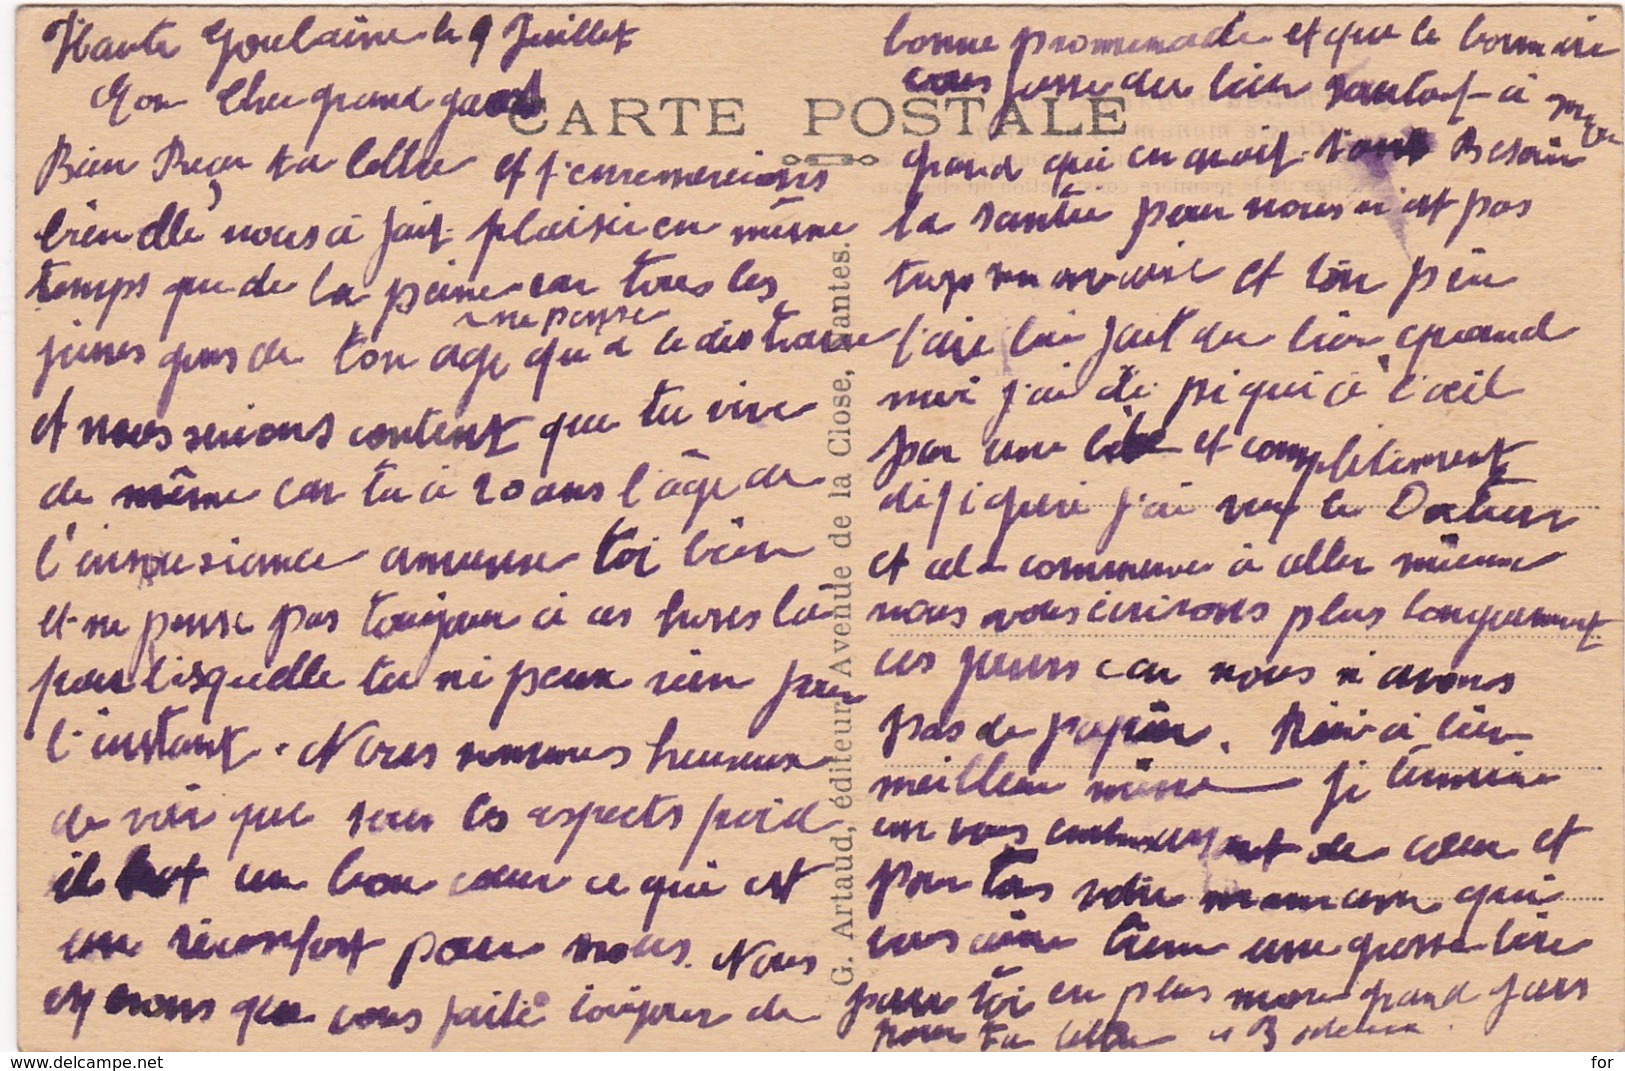 Haute Goulaine le 9 Juillet
Mon cher grand gars
Bien Reçu ta lettre et t'en remercions
bien elle nous a fait plaisir en même
temps que de la peine car tous les
jeunes gens de ton age qu'à ce distraire
ne pense
et nous serions content que tu vive
de même car tu a 20 ans l'âge de
l'insousiance amusse toi bien
et ne pense pas toujour a ces luses la
pour lesquelle tu ni peux rien pour
l'instant. Nous sommes heureux
de voir que sous les aspects froid
il bat un bon cœur ce qui est
un réconfort pour nous. Nous
esperons que vous faite toujour de
bonne promenade et que le bonne air
vous fasse du bien surtout a
grand qui en avait tant Besoin
la santée pour nous n'est pas
trop mauvaise et ton peu
l'aire lui fait du bien quand
moi j'ai été piqué à l'œil
par une bête et complètement
défiguré j'ai vu le Docteur
et cela commence à aller mieux
nous vous écrirons plus longuement
ces jours car nous n'avons
pas de papier. Rémi a bien
meilleur mine je termine
en vous embrassant de cœur et
pour tous votre maman qui
vous aime tienne une grosse bise
pour toi en plus mon grand gars
pour ta lettre
CARTE POSTALE
G. Artaud, éditeur, Avenue de la Close, Nantes.
for